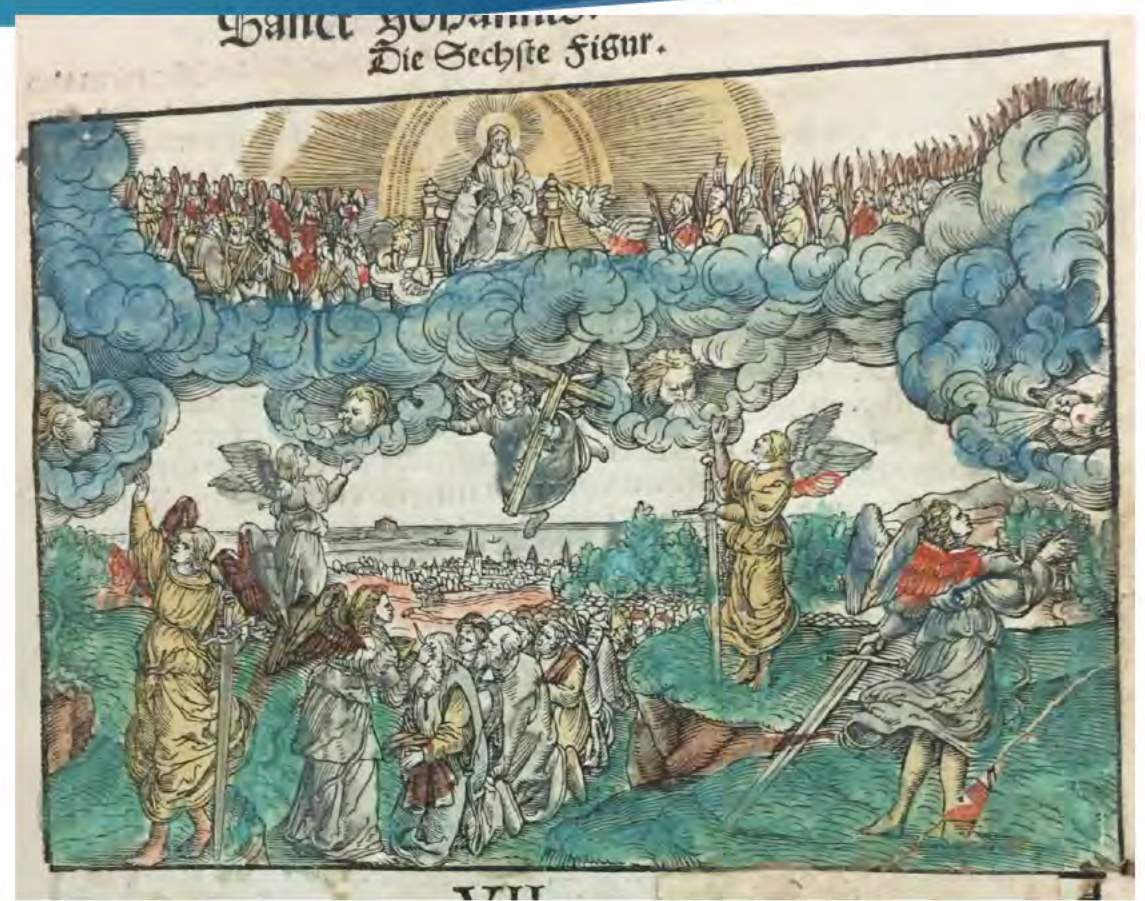 Sanct Johannis.
Die Sechſte Figur.
VII